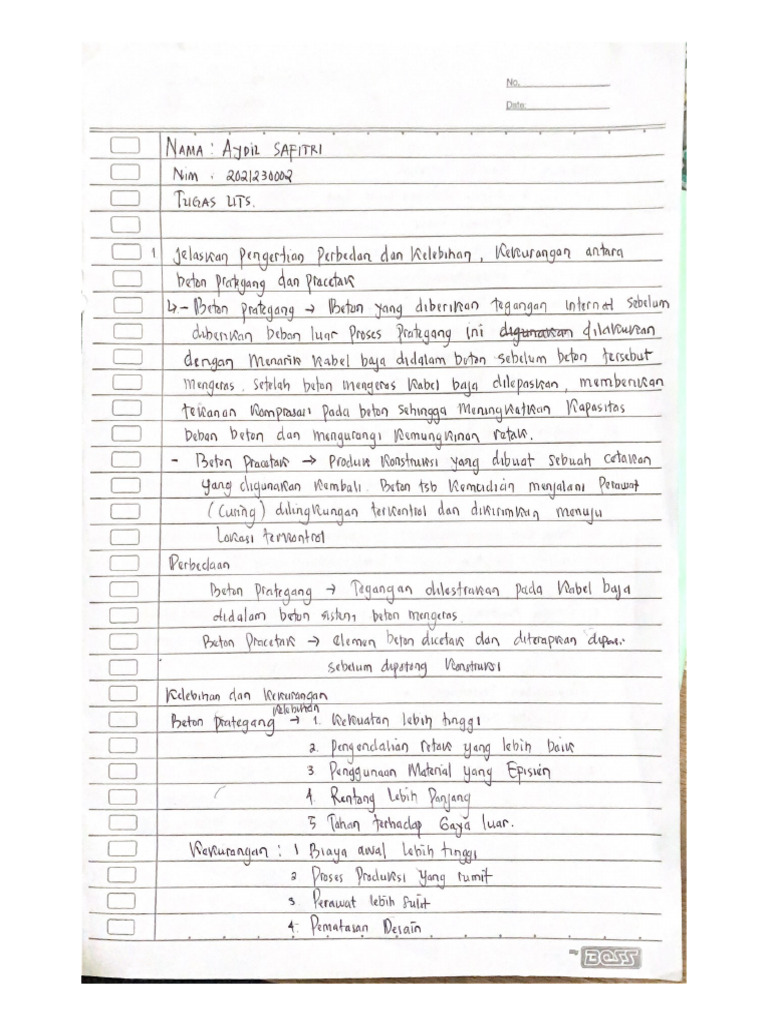 No.
Date:
NAMA : AYDIL SAFITRI
Nim : 2021230002
TUGAS UTS.
1 Jelaskan pengertian Perbedan dan Kelebihan, Kekurangan antara
beton prategang dan pracetak
↳ - Beton prategang → Beton yang diberikan tegangan internel sebelum
diberikan beban luar Proses Prategang ini digunakan dilakukan
dengan Menarik kabel baja didalam beton sebelum beton tersebut
mengeras. Setelah beton mengeras kabel baja dilepaskan, memberikan
tekanan Kompresasi pada beton sehingga Meningkatkan Kapasitas
beban beton dan mengurangi kemungkinan retak.
- Beton Pracetak → Produk Konstruksi yang dibuat sebuah cetakan
yang digunakan kembali. Beton tsb kemudian menjalani Perawat
(Curing) dilingkungan terkontrol dan dikirimkan menuju
Lokasi terkontrol
Perbedaan
Beton prategang → Tegangan dilestrakan pada kabel baja
didalam beton sistem beton mengeras.
Beton Pracetak → elemen beton dicetak dan diterapkan
sebelum dipotong Konstruksi
Kelebihan dan Kekurangan
Beton prategang Kelebihan → 1. Kekuatan lebih tinggi
2. pengendalian retak yang lebih baik
3 Penggunaan Material yang Episien
4. Rentang Lebih Panjang
5 Tahan terhadap Gaya luar.
Kekurangan : 1 Biaya awal lebih tinggi
2 Proses Produksi yang rumit
3 Perawat lebih Sulit
4. Pematasan Desain
My BOSS